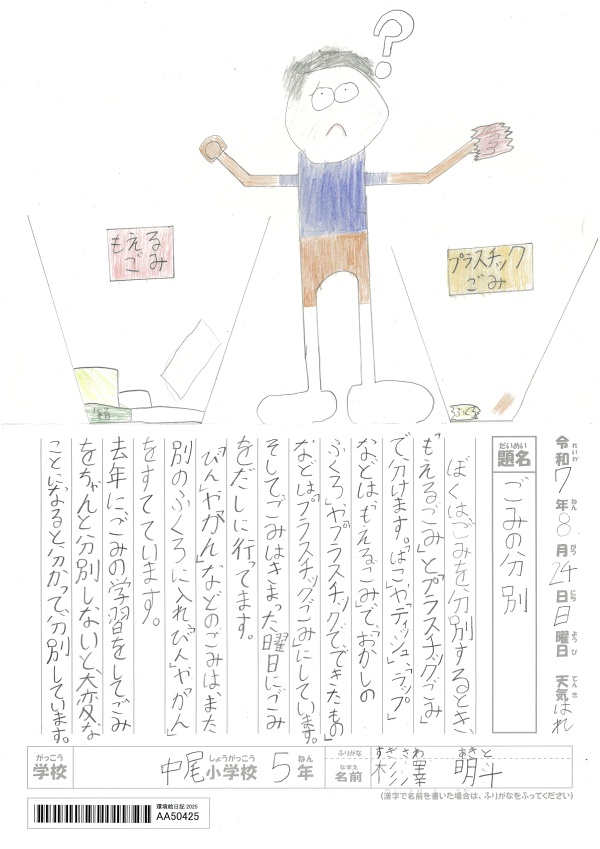 ?
もえる
ごみ
プラスチック
ごみ
ふくろ
令和7年8月24日日曜日 天気はれ
れいわ ねん がつ にち ようび てんき
だいめい
題名
ごみの分別
ぼくはごみを、分別するとき、
「もえるごみ」と「プラスチックごみ」
で分けます。「はこ」や「ティッシュ」、「ラップ」
などは「もえるごみ」で、「おかしの
ふくろ」や「プラスチックで、できたもの」
などは「プラスチックごみ」にしています。
そしてごみはきまった曜日にごみ
をだしに行ってます。
「びん」や「かん」などのごみは、また
別のふくろに入れ「びん」や「かん」
をすてています。
去年にごみの学習をしてごみ
をちゃんと分別しないと、大変な
ことになると分かって、分別しています。
がっこう しょうがっこう ねん
学校 中尾小学校 5年
ふりがな すぎさわ あきと
なまえ
名前 杉澤 明斗
(漢字で名前を書いた場合は、ふりがなをふってください)
環境絵日記2025
AA50425